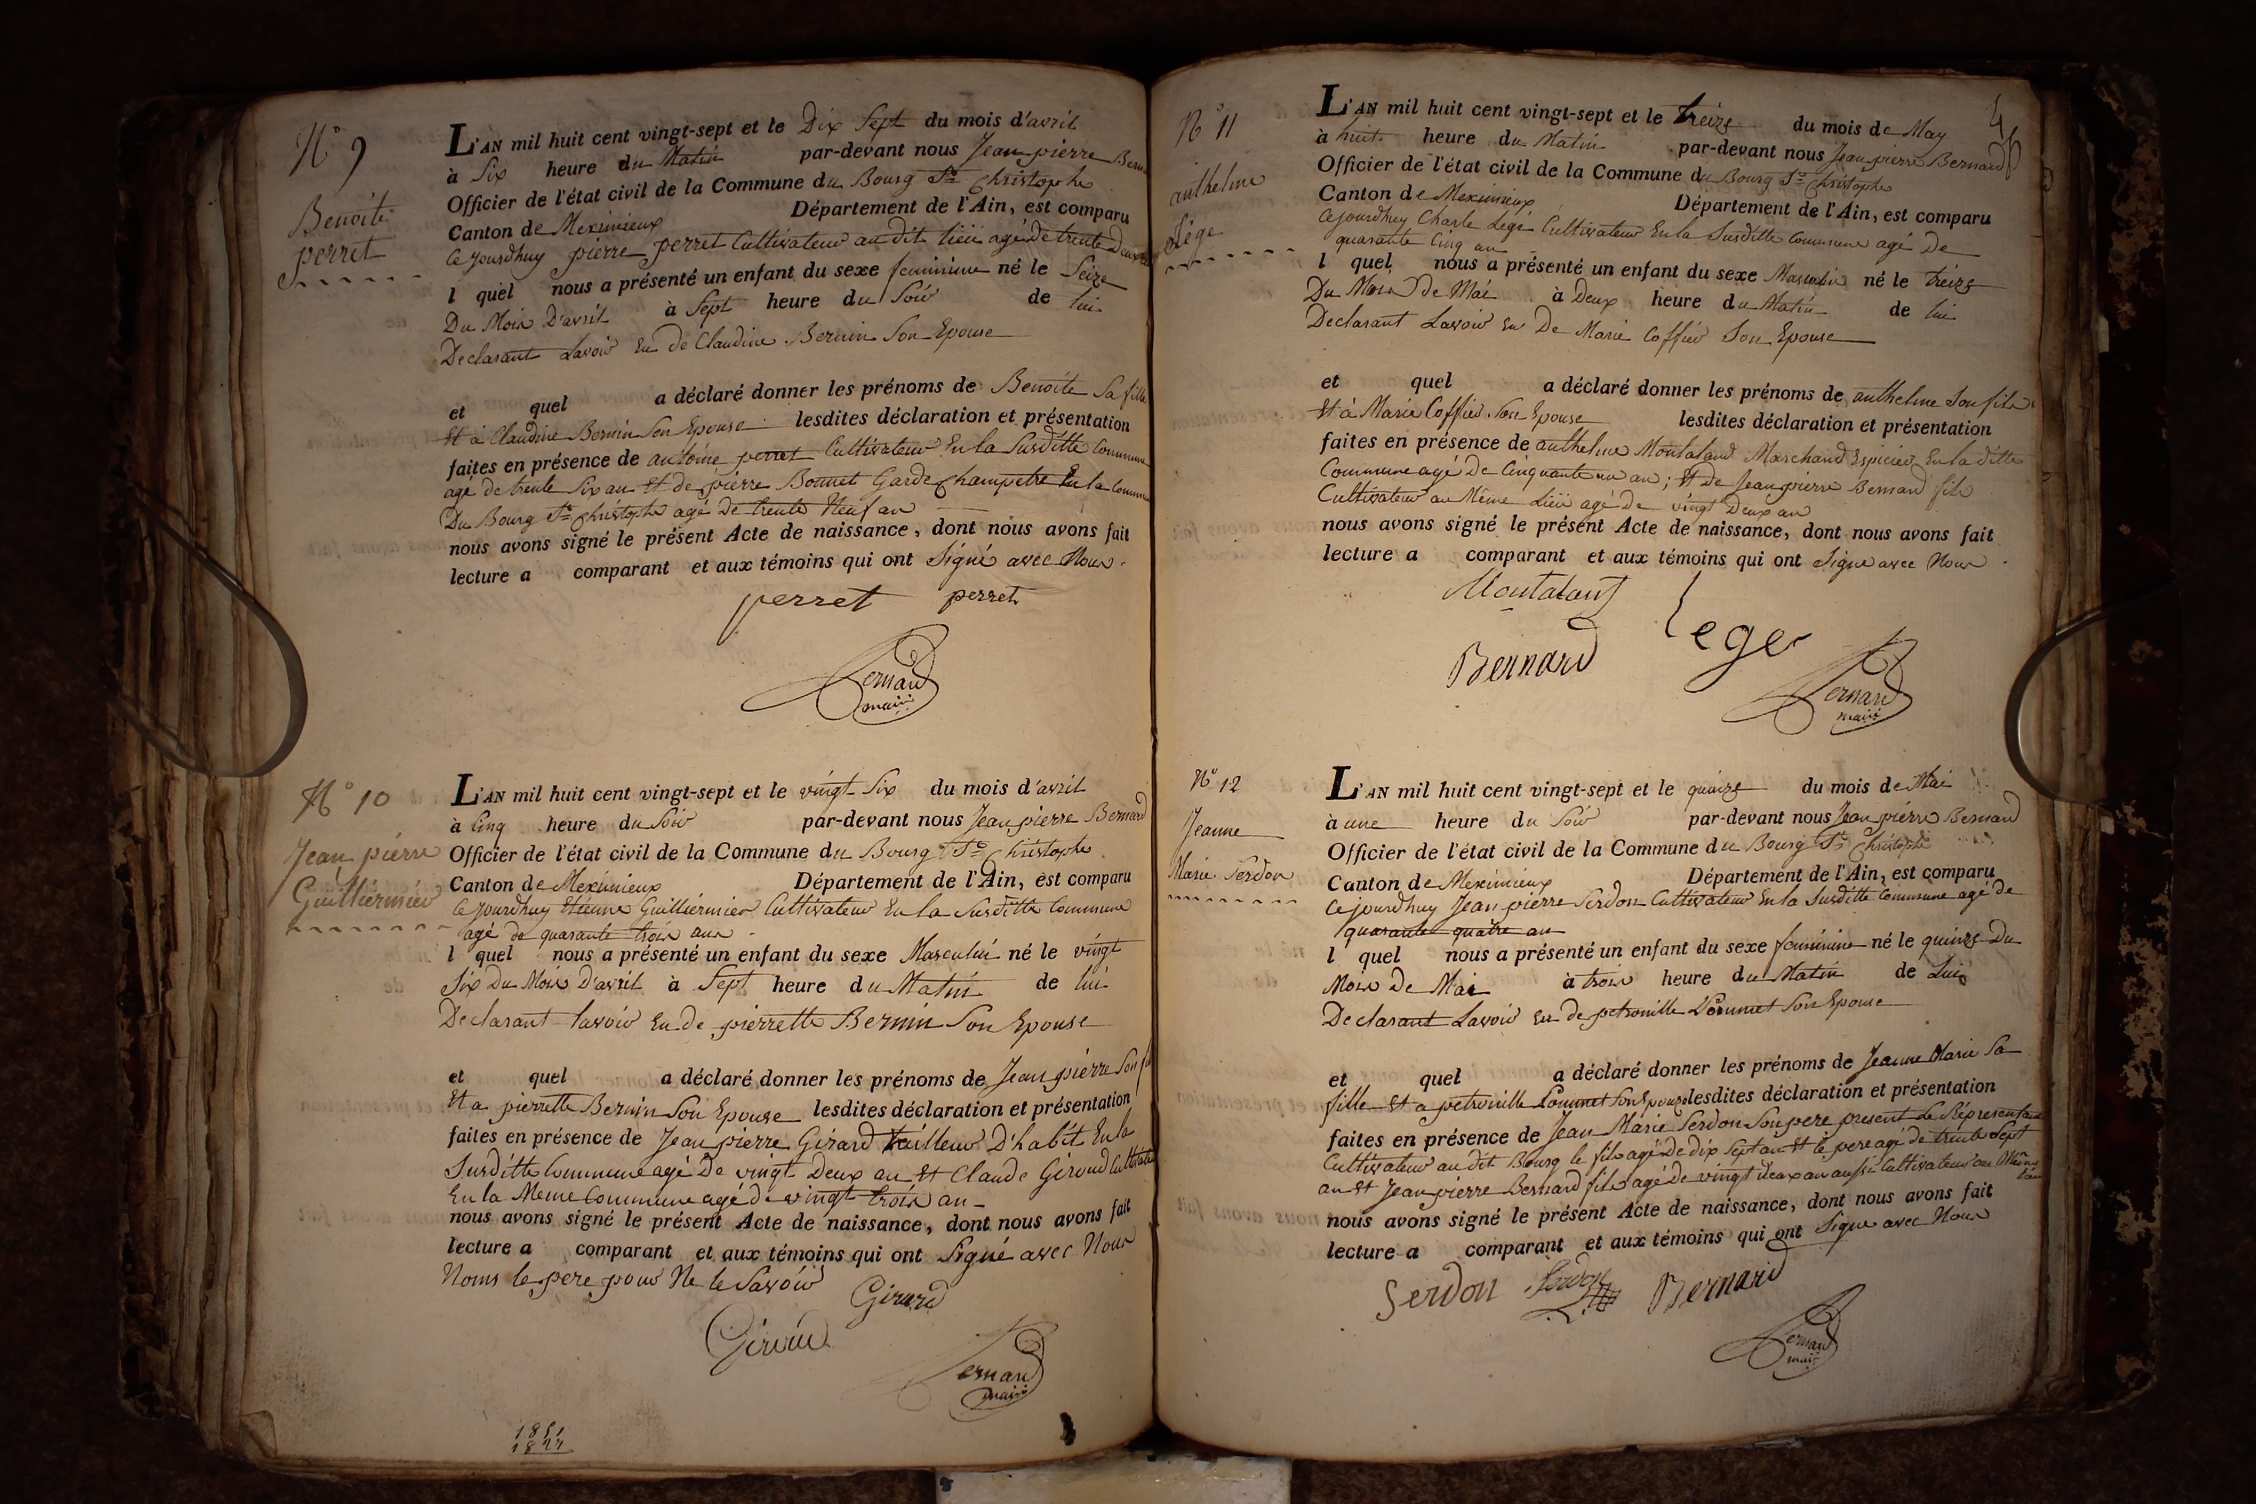 N° 9
Benoite
perret
L'AN mil huit cent vingt-sept et le Dix Sept du mois d'avril
à Six heure du Matin par-devant nous Jean pierre Bern
Officier de l'état civil de la Commune du Bourg St Christophe
Canton de Meximieux Département de l'Ain, est comparu
Ce jourdhuy pierre perret Cultivateur au dit lieü agé de trente Deux
l quel nous a présenté un enfant du sexe feminime né le Seize
Du Mois D'avril à Sept heure du Soir de lui
Declarant Lavoir Eu de Claudine Bernin Son Epouse
et quel a déclaré donner les prénoms de Benoite Sa fille
Et à Claudine Bernin Son Epouse lesdites déclaration et présentation
faites en présence de antoine perret Cultivateur En la Susditte Commune
agé de trente Six an Et de pierre Bonnet Garde Champetre En la Commune
Du Bourg St Christophe agé de trente Neuf an
nous avons signé le présent Acte de naissance, dont nous avons fait
lecture a comparant et aux témoins qui ont Signé avec Nous.
perret perret
Bernard
maire
N° 10
Jean pierre
Guilliérmier
L'AN mil huit cent vingt-sept et le vingt Six du mois d'avril
à Cinq heure du Soir par-devant nous Jean pierre Bernard
Officier de l'état civil de la Commune du Bourg St Christophe
Canton de Meximieux Département de l'Ain, est comparu
Ce jourdhuy Etienne Guilliermier Cultivateur En la Susditte Commune
agé de quarante trois ans
l quel nous a présenté un enfant du sexe Masculin né le vingt
Six Du Mois D'avril à Sept heure du Matin de lui
Declarant lavoir Eu de pierrette Bernin Son Epouse
et quel a déclaré donner les prénoms de Jean pierre Son fi
Et a pierrette Bernin Son Epouse lesdites déclaration et présentation
faites en présence de Jean pierre Girard tailleur D'habit En la
Susditte Commune agé De vingt Deux an Et Claude Giroud Cultivateur
En la Meme Commune agé de vingt trois an
nous avons signé le présent Acte de naissance, dont nous avons fait
lecture a comparant et aux témoins qui ont Signé avec Nous
Nomis le pere pour Ne le Savoir Girard
Giroud
Bernard
maire
N° 11
anthelme
Légé
L'AN mil huit cent vingt-sept et le treize du mois de May
à huit heure du Matin par-devant nous Jean pierre Bernard
Officier de l'état civil de la Commune du Bourg St Christophe
Canton de Meximieux Département de l'Ain, est comparu
Ce jourdhuy Charle Légé Cultivateur En la Susditte Commune agé De
quarante Cinq an
l quel nous a présenté un enfant du sexe Masculin né le treize
Du Mois de Mai à Deux heure du Matin de lui
Declarant Lavoir Eu De Marie Coffier Son Epouse
et quel a déclaré donner les prénoms de anthelme Son fils
Et à Marie Coffier Son Epouse lesdites déclaration et présentation
faites en présence de anthelme Montaland Marchand Epicier En la ditte
Commune agé De Cinquante un an; Et De Jean pierre Bernard fils
Cultivateur au Même Lieü agé de vingt Deux an
nous avons signé le présent Acte de naissance, dont nous avons fait
lecture a comparant et aux témoins qui ont Signé avec Nous
Montaland
Leger
Bernard
Bernard
maire
N° 12
Jeanne
Marie Serdon
L'AN mil huit cent vingt-sept et le quinze du mois de Mai
à une heure du Soir par-devant nous Jean pierre Bernard
Officier de l'état civil de la Commune du Bourg St Christophe
Canton de Meximieux Département de l'Ain, est comparu
Ce jourdhuy Jean pierre Serdon Cultivateur En la Susditte Commune agé de
quarante quatre an
l quel nous a présenté un enfant du sexe feminime né le quinze Du
Mois De Mai à trois heure du Matin de Lui
Declarant Lavoir Eu de petronille Son Epouse
et quel a déclaré donner les prénoms de Jeanne Marie Sa
fille Et a petronille Son Epouse lesdites déclaration et présentation
faites en présence de Jean Marie Serdon Son pere present Le Répresentant
Cultivateur au dit Bourg le fils agé de dix Sept an Et le pere agé de trente Sept
an Et Jean pierre Bernard fils agé De vingt deux an aussi Cultivateur au Même
lieu
nous avons signé le présent Acte de naissance, dont nous avons fait
lecture a comparant et aux témoins qui ont Signé avec Nous
Serdon Serdon Bernard
Bernard
maire